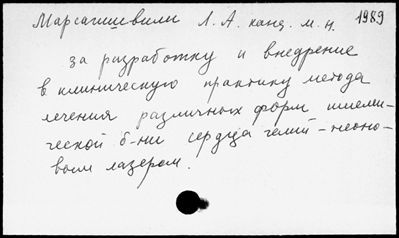 Марсагишвили Л. А. канд. м. н. 1989
за разработку и внедрение
в клиническую практику метода
лечения различных форм ишеми-
ческой б-ни сердца гелий-неоно-
вым лазером.